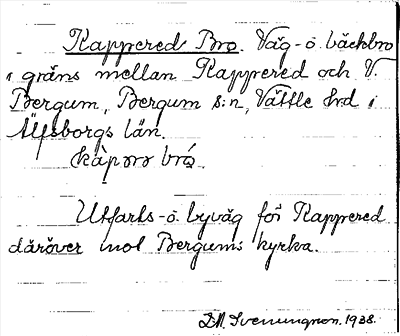 Kappered Bro. Väg- o. bäckbro
i gräns mellan Kappered och V.
Bergum, Bergum s:n, Vättle hd i
Älfsborgs län.
bro
Utfarts- o. byväg för Kappered
däröver mot Bergums kyrka.
D.M. Svenungson. 1938.